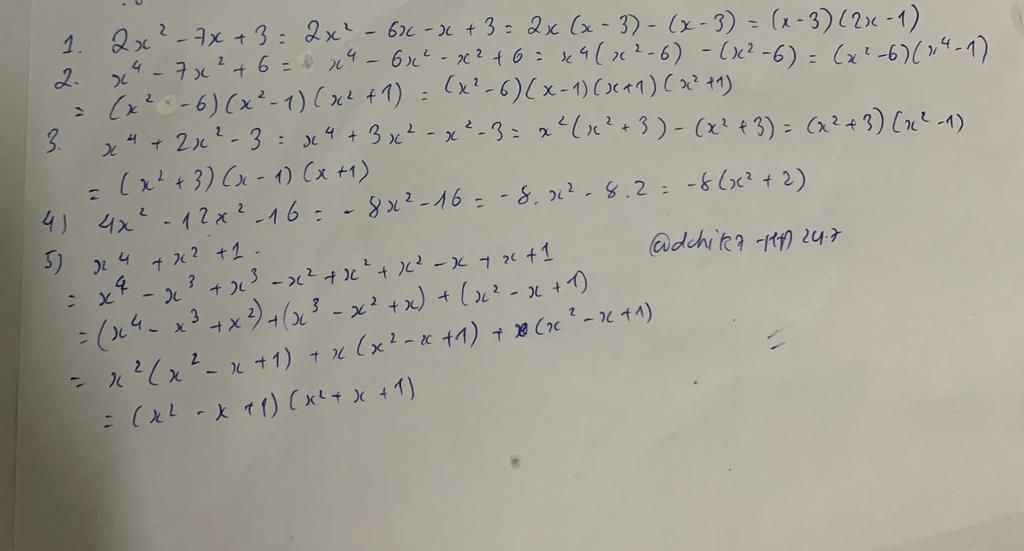 1. 2x² - 7x + 3 = 2x² - 6x - x + 3 = 2x (x - 3) - (x - 3) = (x - 3) (2x - 1)
2. x⁴ - 7x² + 6 = x⁴ - 6x² - x² + 6 = x⁴ (x² - 6) - (x² - 6) = (x² - 6) (x⁴ - 1)
= (x² - 6) (x² - 1) (x² + 1) = (x² - 6) (x - 1) (x + 1) (x² + 1)
3. x⁴ + 2x² - 3 = x⁴ + 3x² - x² - 3 = x² (x² + 3) - (x² + 3) = (x² + 3) (x² - 1)
= (x² + 3) (x - 1) (x + 1)
4) 4x² - 12x² - 16 = - 8x² - 16 = - 8. x² - 8.2 = -8 (x² + 2)
5) x⁴ + x² + 1.
= x⁴ - x³ + x³ - x² + x² + x² - x + x + 1
= (x⁴ - x³ + x²) + (x³ - x² + x) + (x² - x + 1)
= x² (x² - x + 1) + x (x² - x + 1) + (x² - x + 1)
= (x² - x + 1) (x² + x + 1)
=